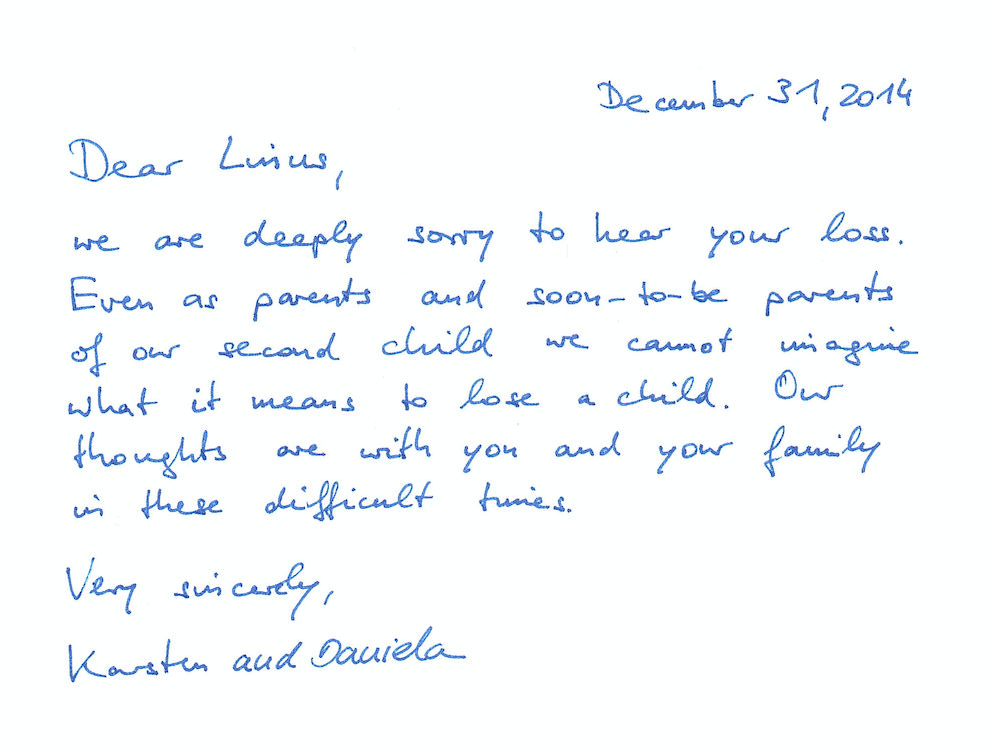 December 31, 2014
Dear Linus,
we are deeply sorry to hear your loss.
Even as parents and soon-to-be parents
of our second child we cannot imagine
what it means to lose a child. Our
thoughts are with you and your family
in these difficult times.
Very sincerely,
Karsten and Daniela